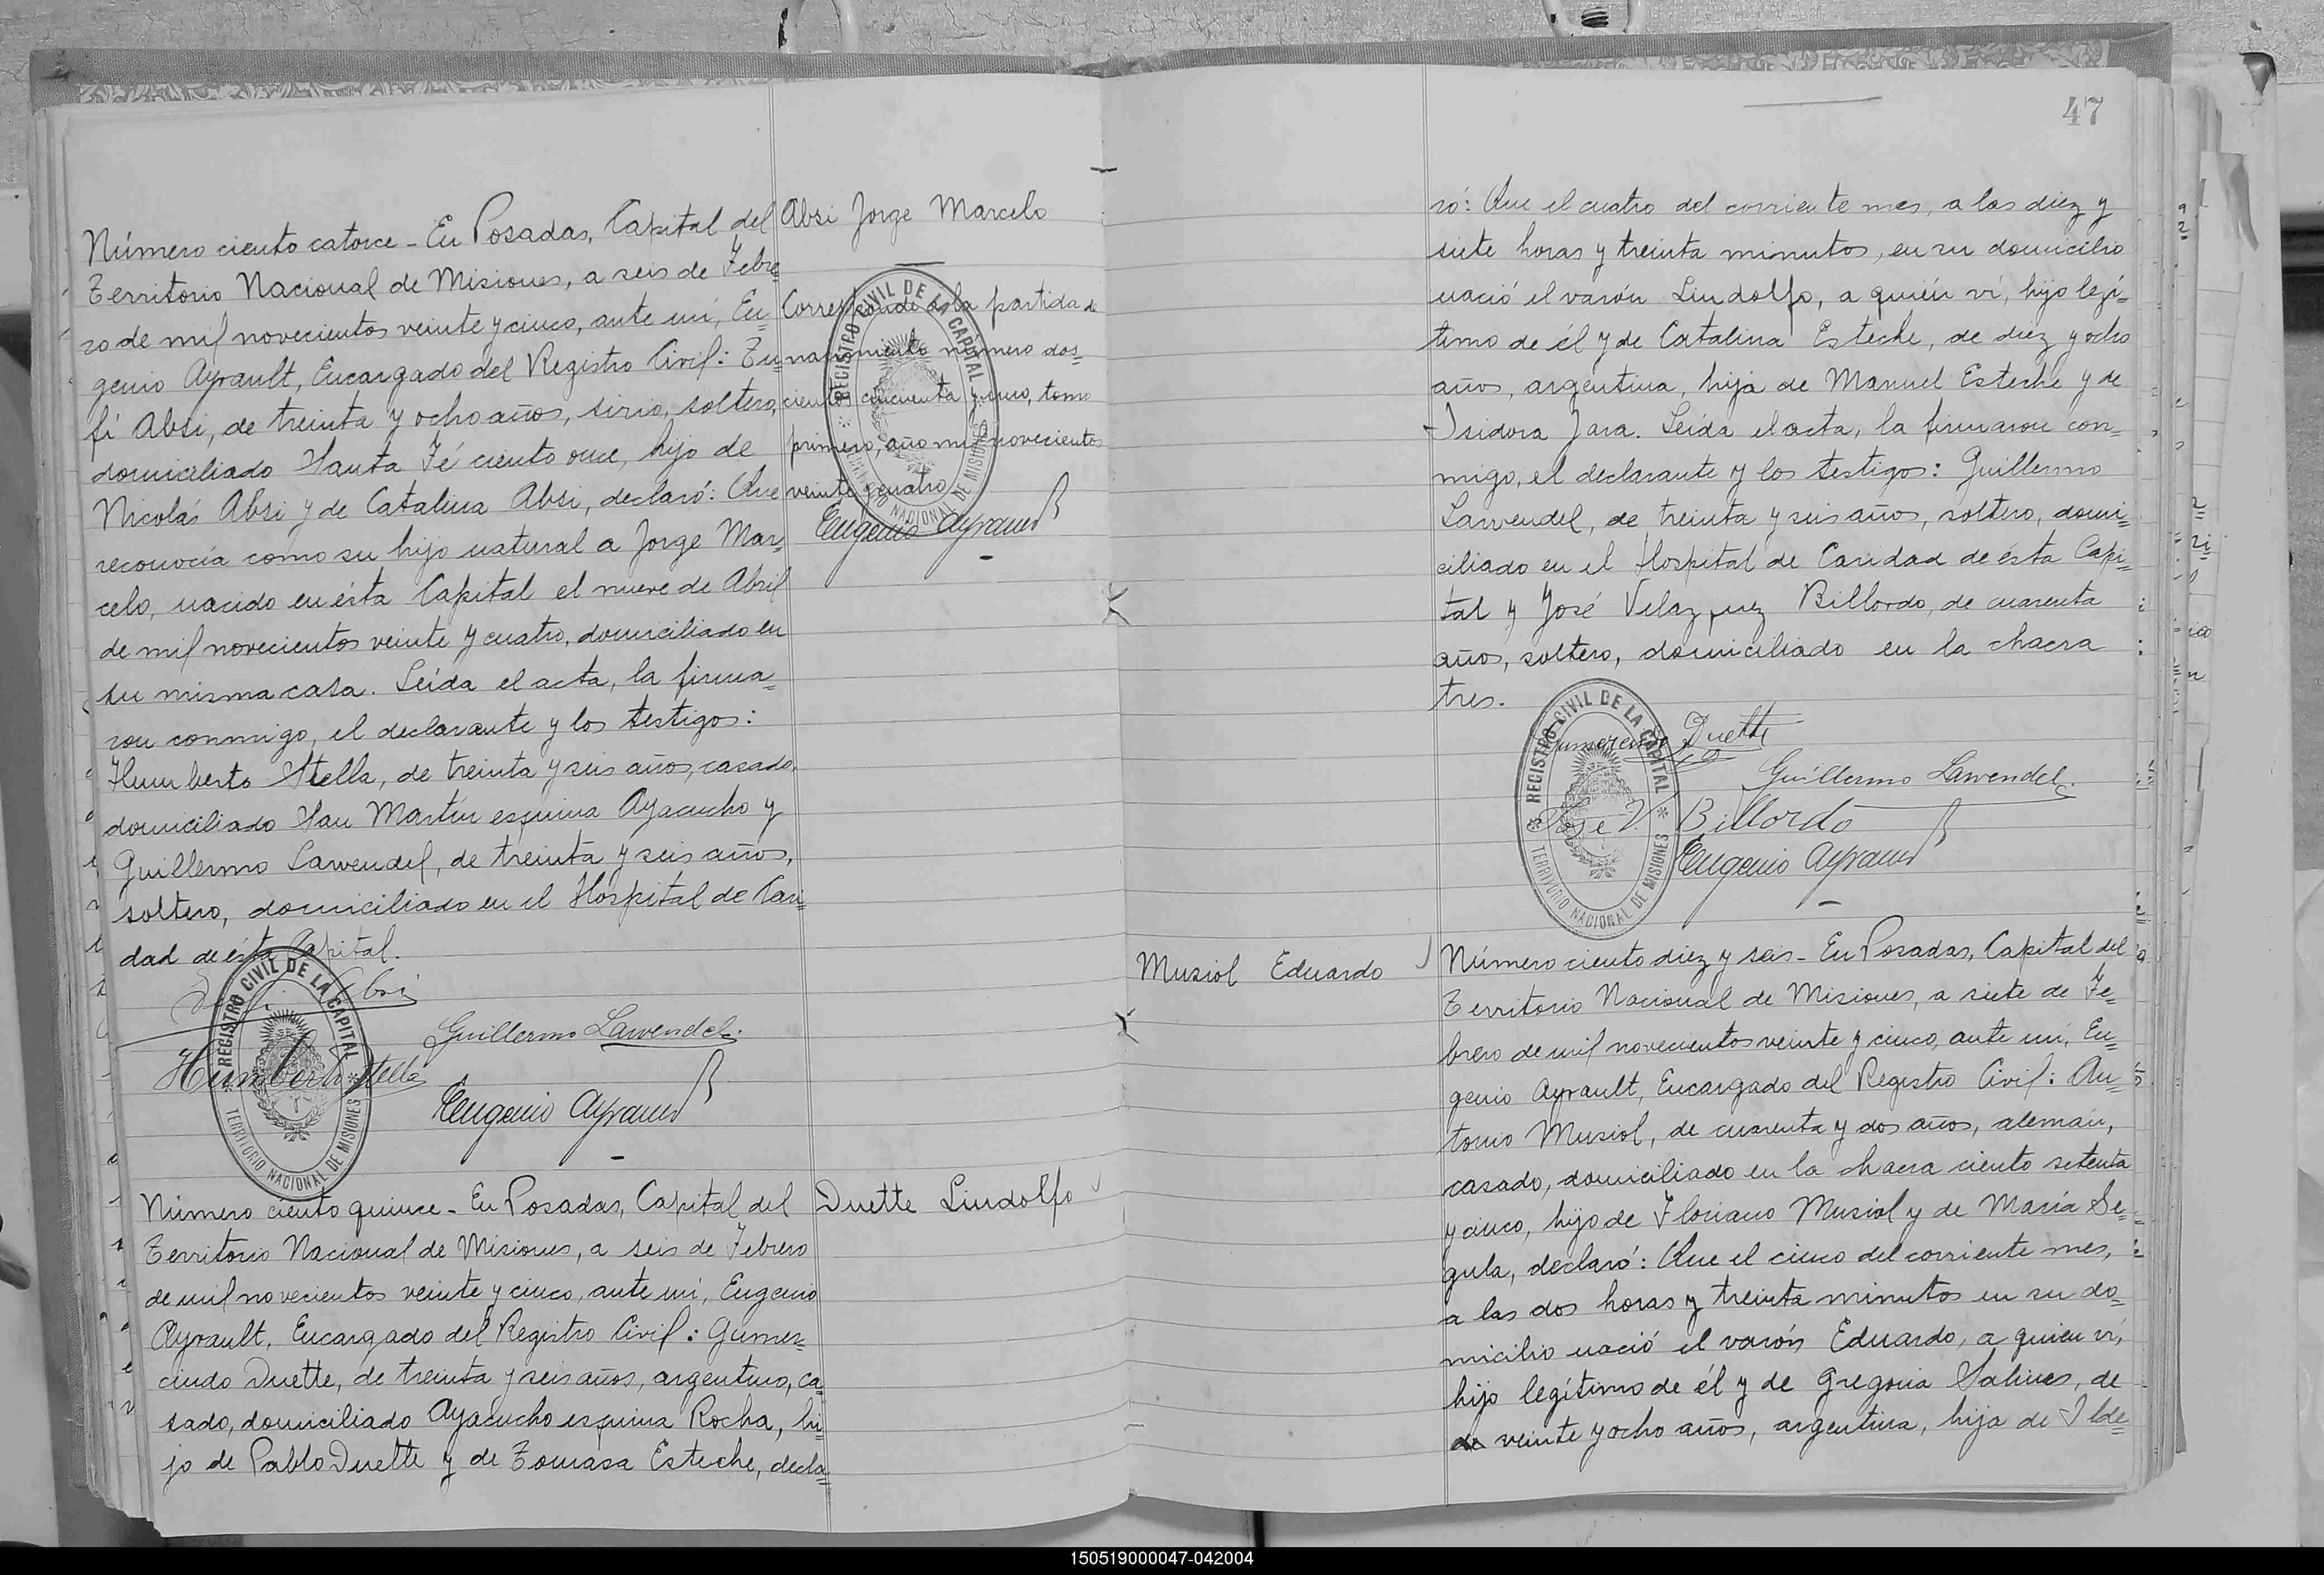 Número ciento catorce - En Posadas, Capital del
Territorio Nacional de Misiones, a seis de Febre=
ro de mil novecientos veinte y cinco, ante mí, Eu=
genio Ayrault, Encargado del Registro Civil: Zu=
fi Absi, de treinta y ocho años, sirio, soltero,
domiciliado Santa Fé ciento once, hijo de
Nicolás Absi y de Catalina Absi, declaró: Que
reconocía como su hijo natural a Jorge Mar=
celo, nacido en ésta Capital el nueve de Abril
de mil novecientos veinte y cuatro, domiciliado en
su misma casa. Leída el acta, la firma=
ron conmigo, el declarante y los testigos:
Humberto Stella, de treinta y seis años, casado,
domiciliado San Martín esquina Ayacucho y
Guillermo Lawendel, de treinta y seis años,
soltero, domiciliado en el Hospital de Cari=
dad de ésta Capital.
Absi
Guillermo Lawendel.
Humberto Stella
Eugenio Ayrault
REGISTRO CIVIL DE LA CAPITAL
TERRITORIO NACIONAL DE MISIONES
Absi Jorge Marcelo
Corresponde a la partida de
nacimiento número dos=
cientos cincuenta y uno, tomo
primero, año mil novecientos
veinte y cuatro
Eugenio Ayrault
REGISTRO CIVIL DE LA CAPITAL
TERRITORIO NACIONAL DE MISIONES
Número ciento quince - En Posadas, Capital del
Territorio Nacional de Misiones, a seis de Febrero
de mil novecientos veinte y cinco, ante mí, Eugenio
Ayrault, Encargado del Registro Civil: Gumer=
cindo Duette, de treinta y seis años, argentino, ca=
sado, domiciliado Ayacucho esquina Rocha, hi=
jo de Pablo Duette y de Tomasa Esteche, decla=
Duette Lindolfo
47
ró: Que el cuatro del corriente mes, a las diez y
siete horas y treinta minutos, en su domicilio
nació el varón Lindolfo, a quién ví, hijo legí=
timo de él y de Catalina Esteche, de diez y ocho
años, argentina, hija de Manuel Esteche y de
Isidora Jara. Leída el acta, la firmaron con=
migo, el declarante y los testigos: Guillermo
Lawendel, de treinta y seis años, soltero, domi=
ciliado en el Hospital de Caridad de ésta Capi=
tal y José Velazquez Billordo, de cuarenta
años, soltero, domiciliado en la chacra
tres.
Gumercindo Duette
Guillermo Lawendel.
José V. Billordo
Eugenio Ayrault
REGISTRO CIVIL DE LA CAPITAL
TERRITORIO NACIONAL DE MISIONES
Musiol Eduardo
Número ciento diez y seis - En Posadas, Capital del
Territorio Nacional de Misiones, a siete de Fe=
brero de mil novecientos veinte y cinco, ante mí, Eu=
genio Ayrault, Encargado del Registro Civil: An=
tonio Musiol, de cuarenta y dos años, alemán,
casado, domiciliado en la chacra ciento setenta
y cinco, hijo de Floriano Musiol y de María Se=
gula, declaró: Que el cinco del corriente mes,
a las dos horas y treinta minutos en su do=
micilio nació el varón Eduardo, a quien ví,
hijo legítimo de él y de Gregoria Salinas, de
de veinte y ocho años, argentina, hija de Ilde=
150519000047-042004